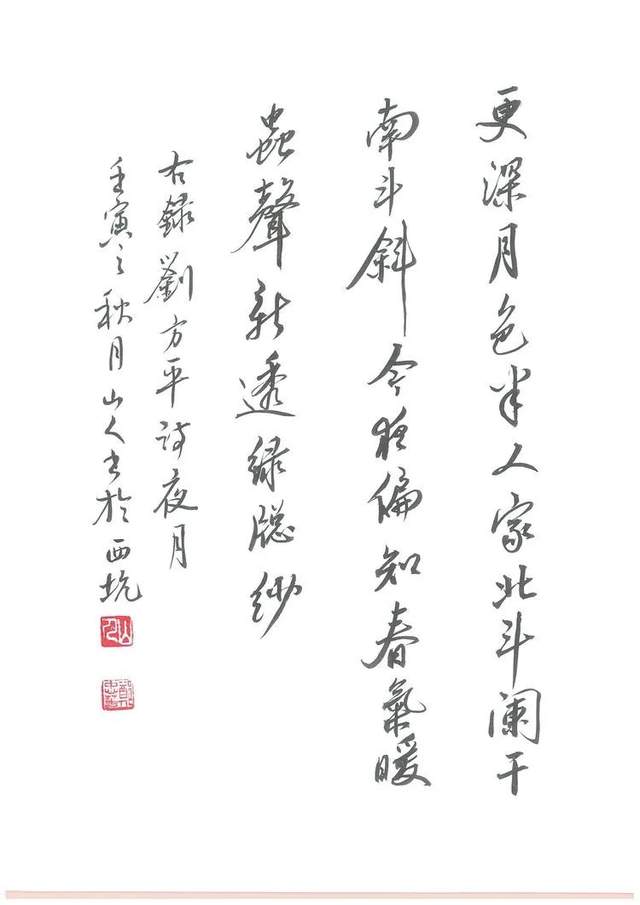 更深月色半人家北斗阑干
南斗斜今夜偏知春氣暖
蟲聲新透緑牕紗
右録劉方平詩夜月
壬寅之秋月山人书於西坑
山人